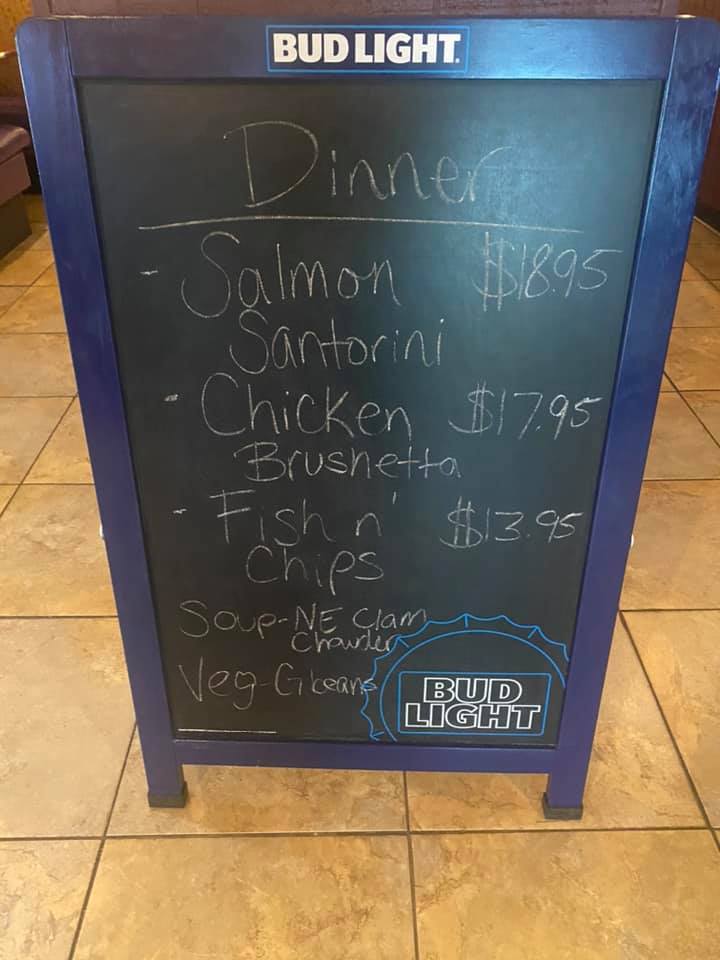 BUD LIGHT.
Dinner
- Salmon $18.95
Santorini
- Chicken $17.95
Brushetta
- Fish n' $13.95
Chips
Soup-NE Clam
Chowder
Veg-G beans
BUD
LIGHT